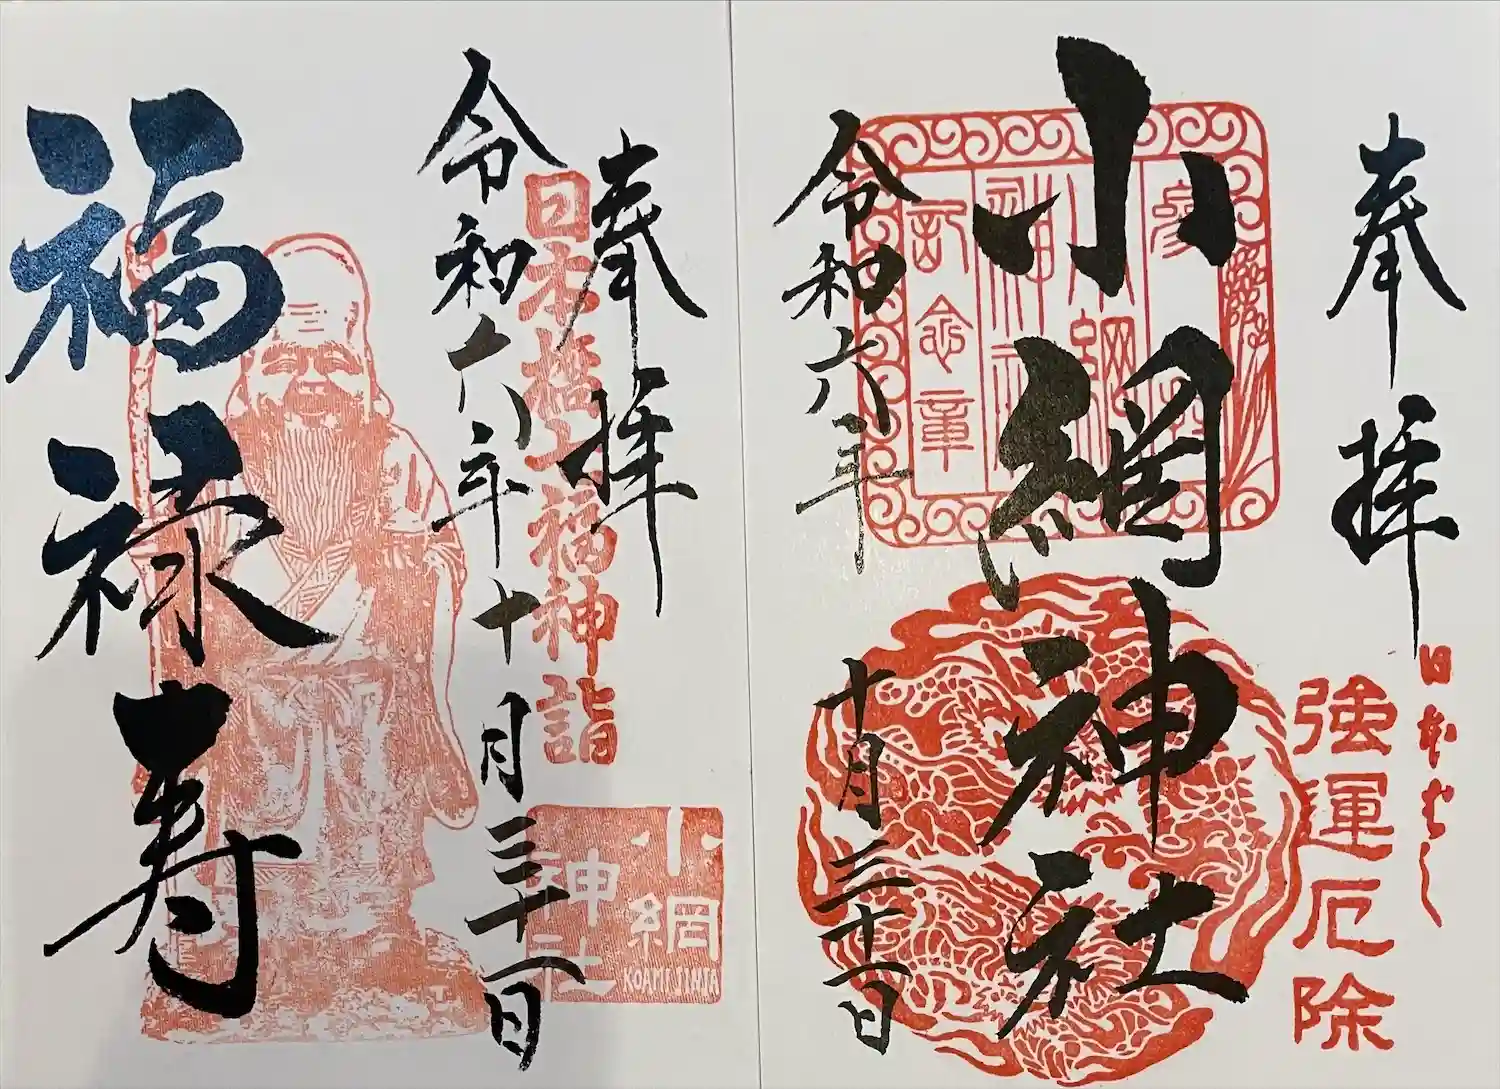 奉拝
日本はし
強運厄除
小網神社
参拝
小網神社
記念章
令和六年
十月三十一日
奉拝
日本橋七福神詣
小網
神社
KOAMI JINJA
令和六年十月三十一日
福禄寿